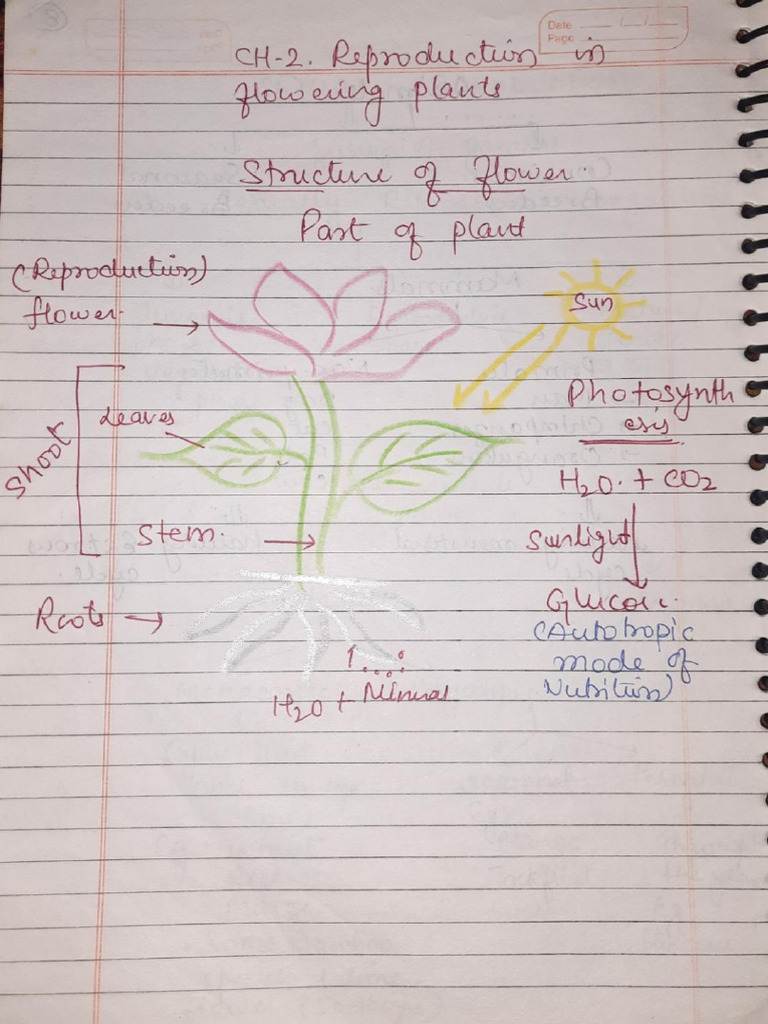 Date
Page
CH-2. Reproduction in
flowering plants
Structure of flower.
Part of plant
(Reproduction)
flower.
Sun
Leaves
Shoot
Photosynth
esis
H2O. + CO2
Stem.
Sunlight
Roots
(Autotropic
mode of
Nutrition)
H2O +